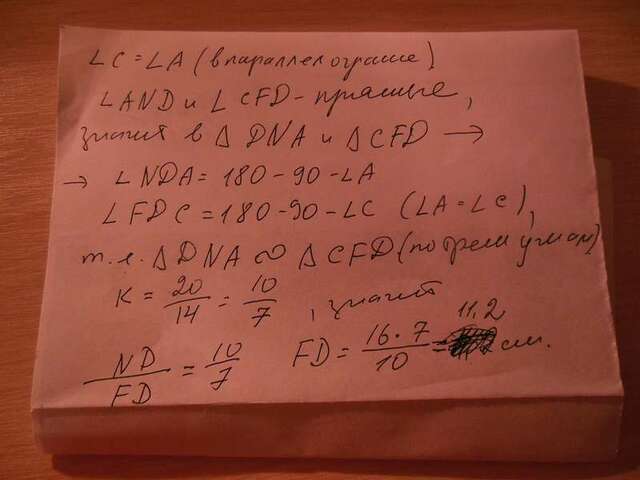 ∠C = ∠A (в параллелограме)
∠AND и ∠CFD - прямые,
значит в Δ DNA и Δ CFD →
→ ∠NDA = 180 - 90 - ∠A
∠FDC = 180 - 90 - ∠C (∠A = ∠C),
т.е. Δ DNA ∞ Δ CFD (по трем углам)
K = 20/14 = 10/7, значит
ND/FD = 10/7 FD = 16·7/10 = 11,2 см.